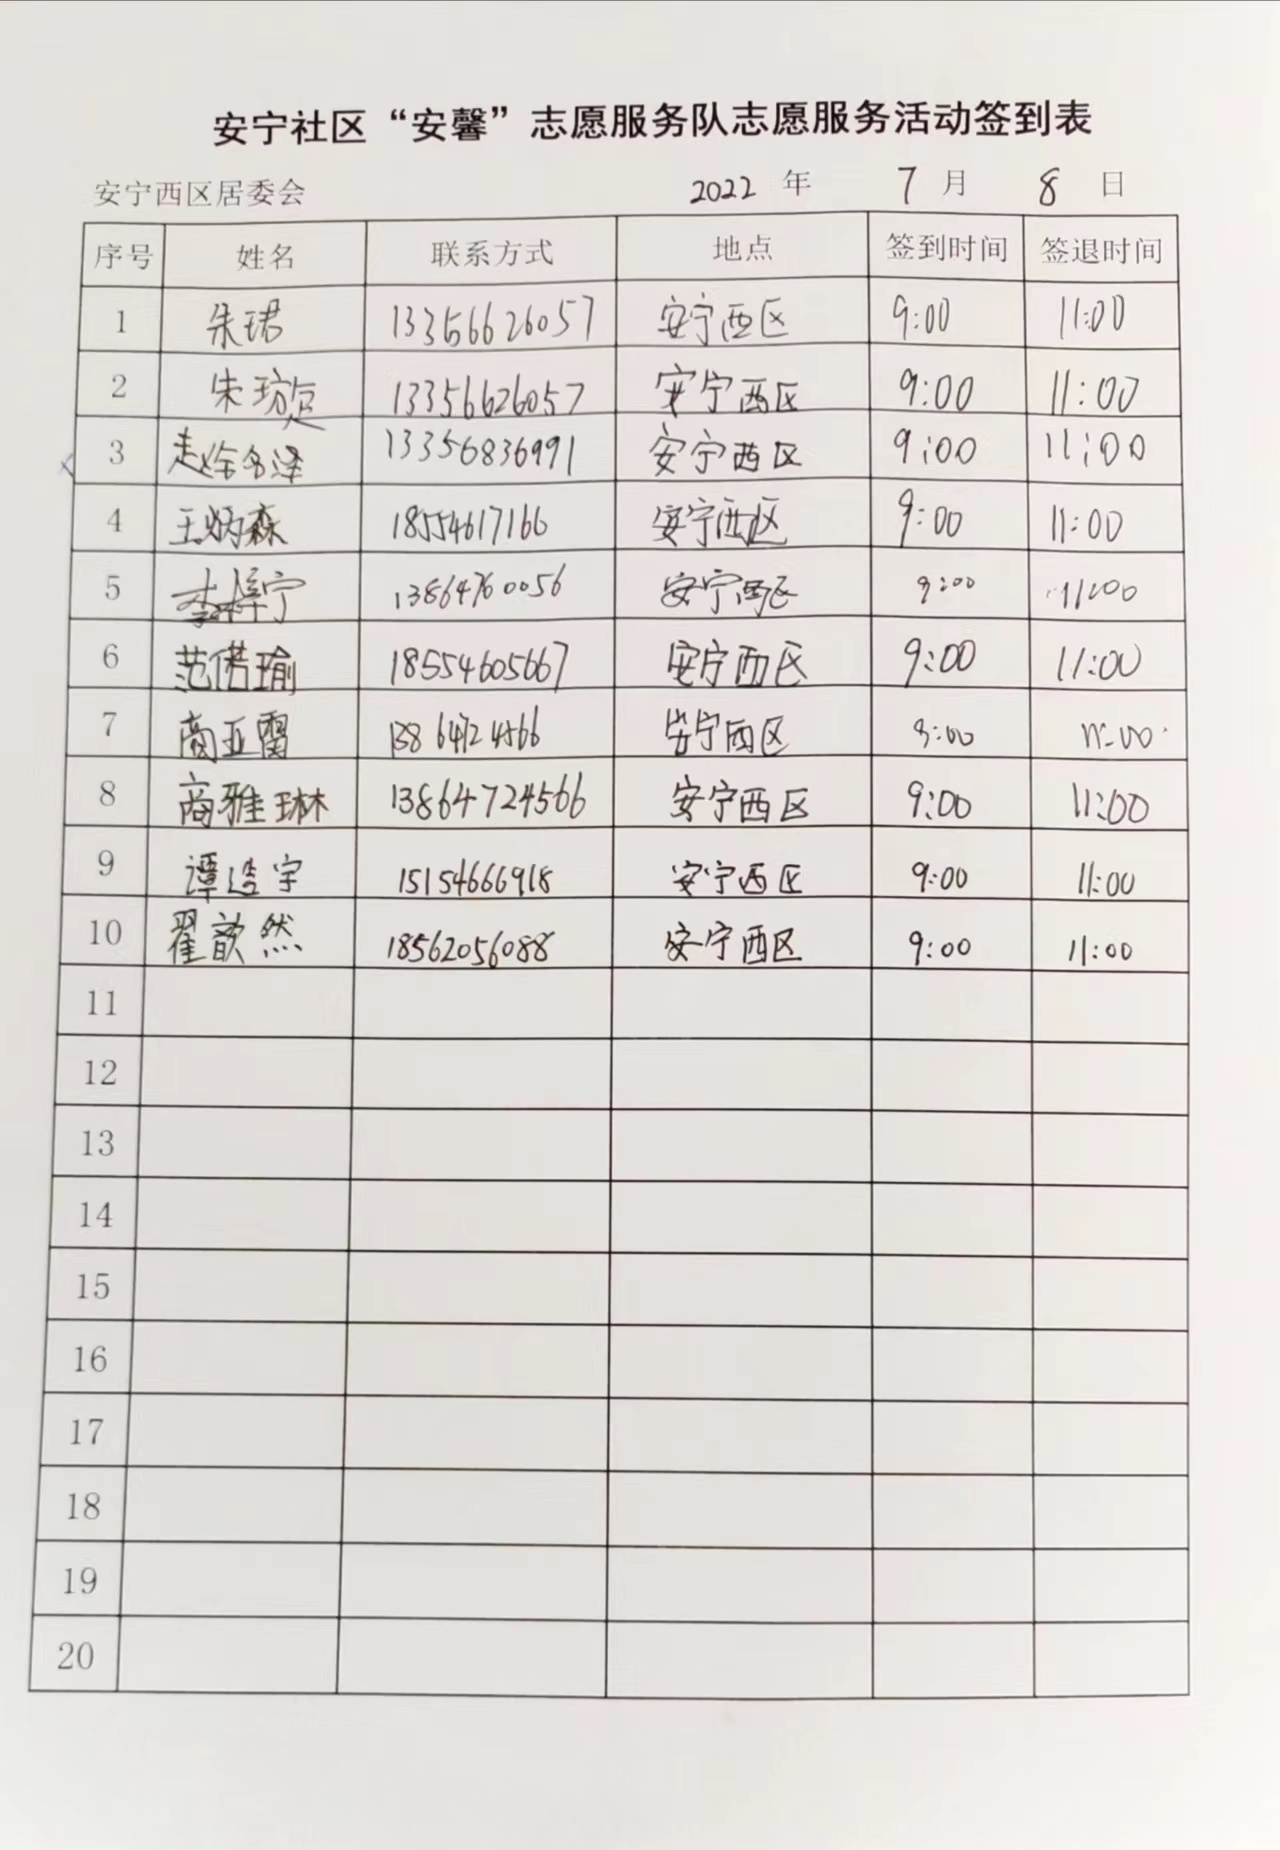 安宁社区“安馨”志愿服务队志愿服务活动签到表
安宁西区居委会 2022 年 7 月 8 日
序号 姓名 联系方式 地点 签到时间 签退时间
1 朱珺 13356626057 安宁西区 9:00 11:00
2 朱 13356626057 安宁西区 9:00 11:00
3 13356836991 安宁西区 9:00 11:00
4 王炳森 18554617166 安宁西区 9:00 11:00
5 李梓宁 13864760056 安宁西区 9:00 11:00
6 范偌瑜 18554605667 安宁西区 9:00 11:00
7 商亚雷 13864724566 安宁西区 9:00 11:00
8 商雅琳 13864724566 安宁西区 9:00 11:00
9 谭浩宇 15154666918 安宁西区 9:00 11:00
10 翟歆然 18562056088 安宁西区 9:00 11:00
11
12
13
14
15
16
17
18
19
20